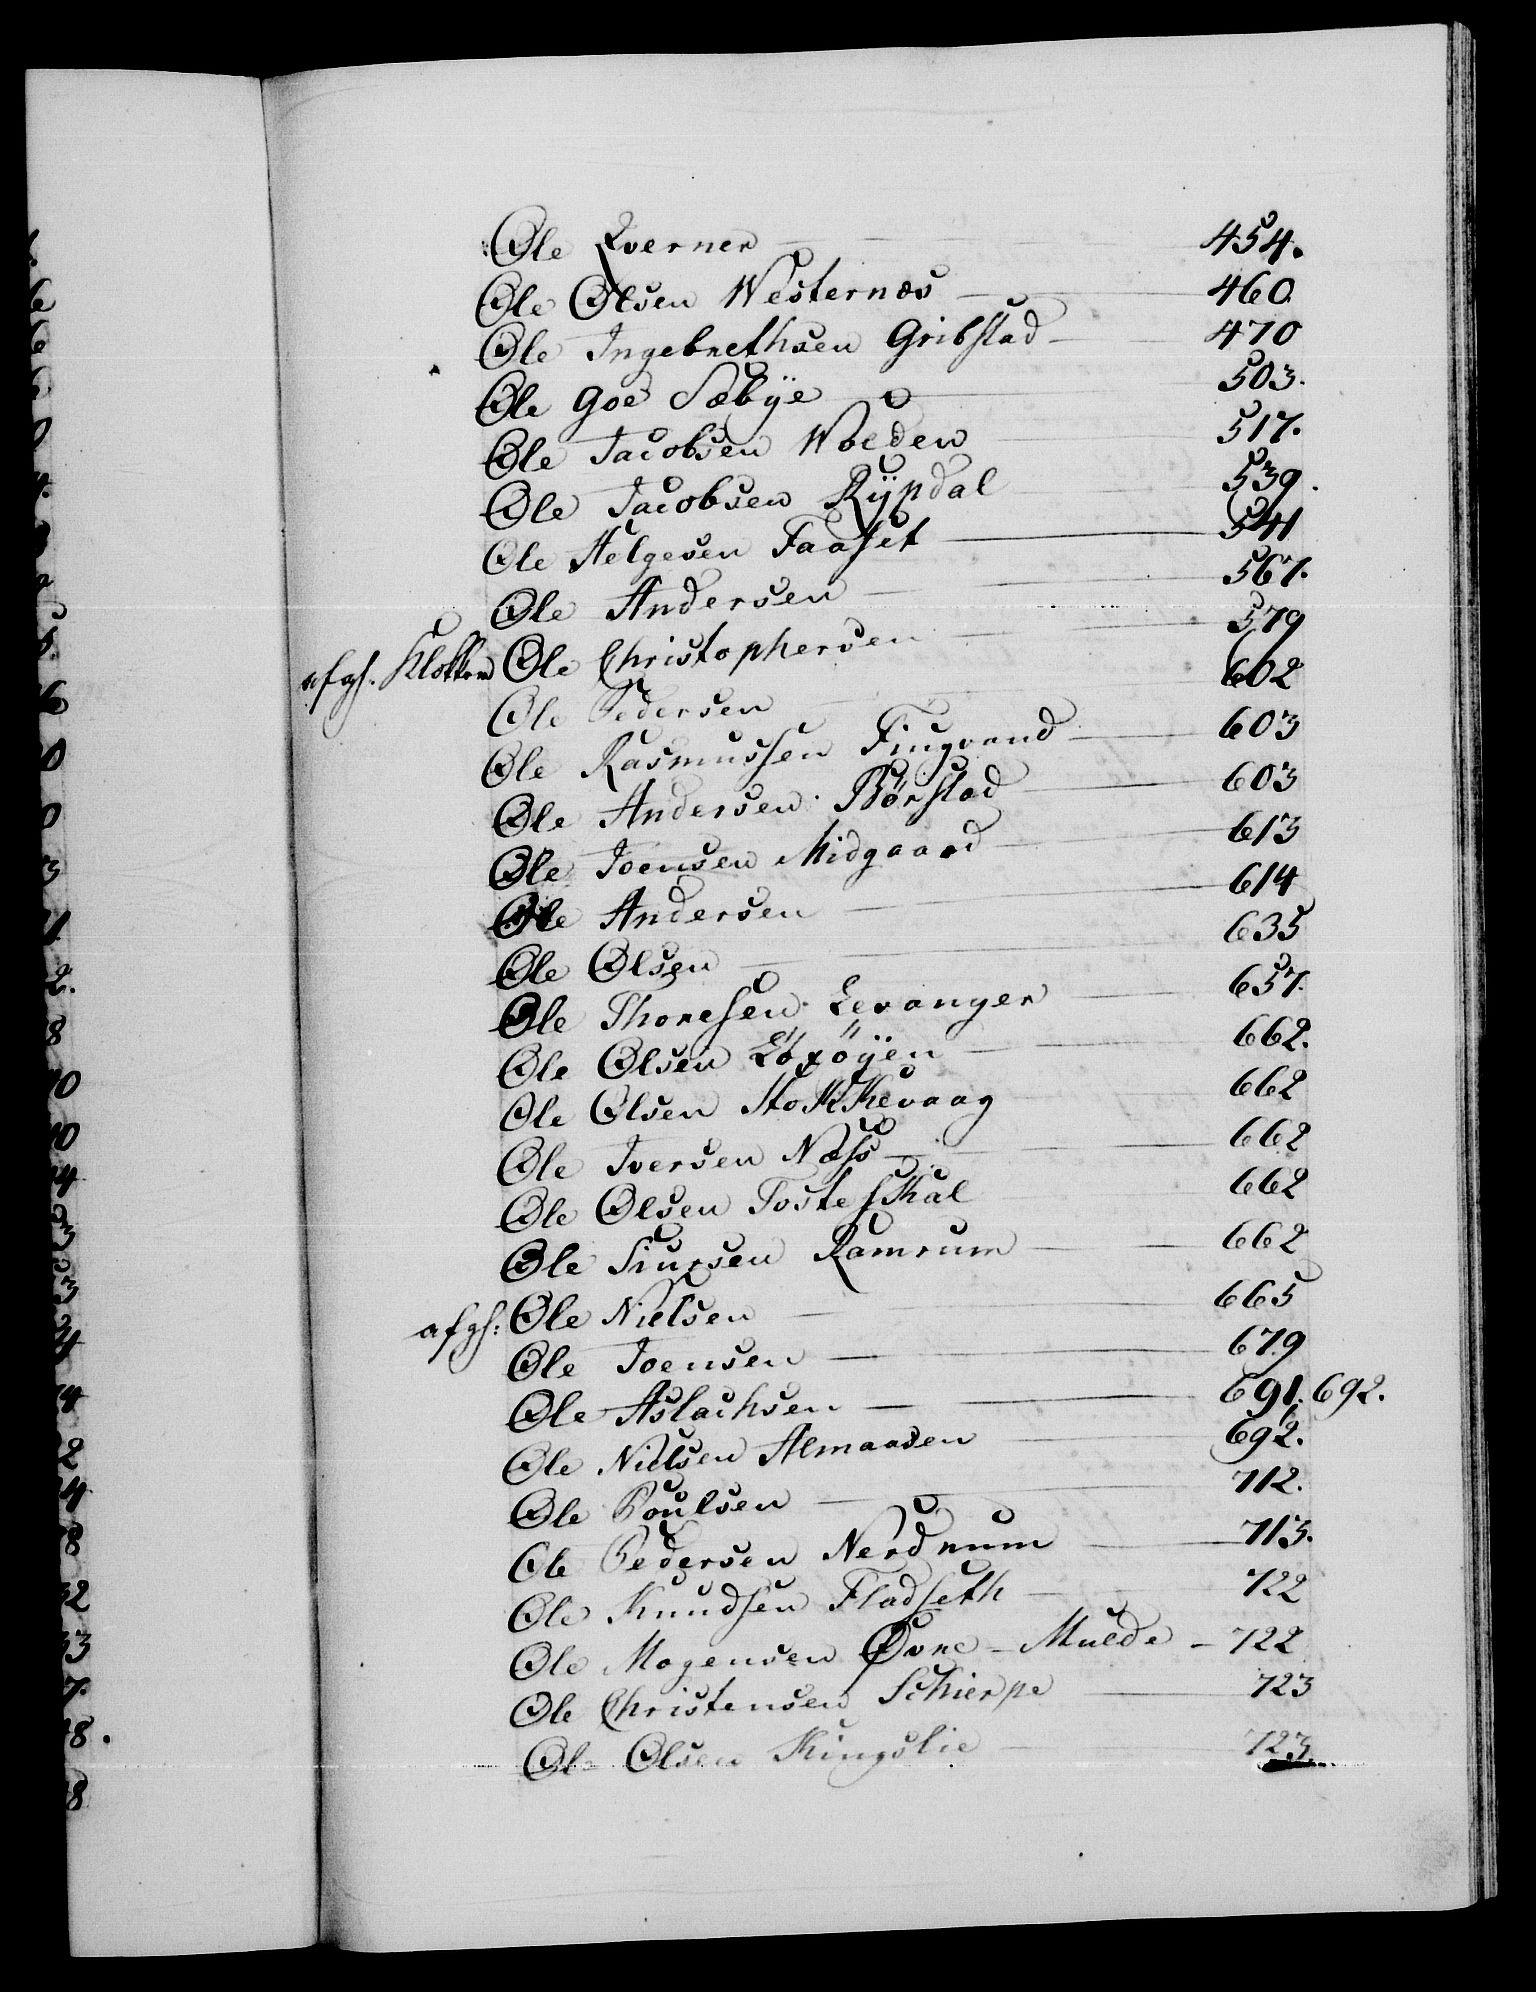 Ole Qverner - 454.
Ole Olsen Westernæs - 460.
Ole Ingebrethsen Gribstad - 470
Ole Goe Sæbÿe - 503.
Ole Jacobsen Wolden 517.
Ole Jacobsen Rÿpdal 539.
Ole Helgesen Faaset 541
Ole Andersen - 567.
afgh. Klokker Ole Christophersen - 579
Ole Pedersen 602
Ole Rasmussen Tingvand - 603
Ole Andersen Børstad 603
Ole Joensen Midgaard - 613
Ole Andersen - 614
Ole Olsen - 635
Ole Thoresen Levanger 657.
Ole Olsen Löxöÿen - 662.
Ole Olsen Stokkevaag 662
Ole Iversen Næss - 662
Ole Olsen Losteskal 662
Ole Siursen Ramrum - 662
afgh: Ole Nielsen - 665
Ole Joensen - 679
Ole Aslachsen - 691. 692.
Ole Nielsen Almaasen 692.
Ole Poulsen - 712.
Ole Pedersen Nerdrum 713.
Ole Knudsen Fladseth - 722
Ole Mogensen Øvre-Muelde - 722
Ole Christensen Schierpe 723
Ole Olsen Kingslie 723.